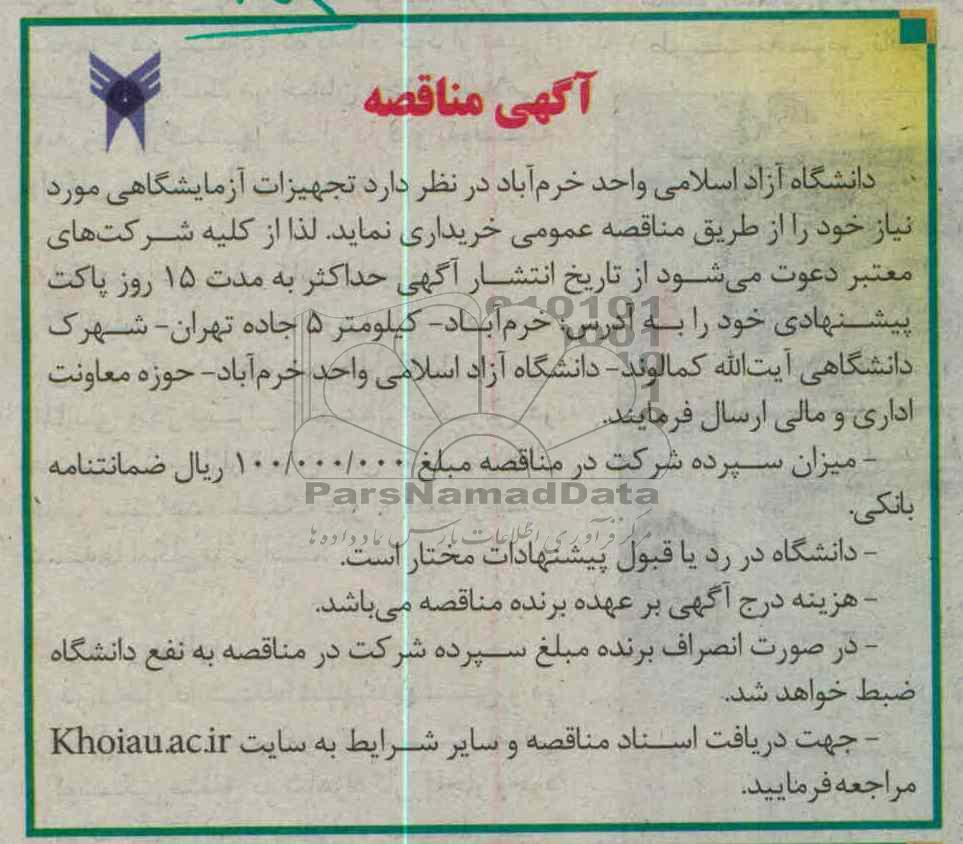 آگهی مناقصه
دانشگاه آزاد اسلامی واحد خرم‌آباد در نظر دارد تجهیزات آزمایشگاهی مورد
نیاز خود را از طریق مناقصه عمومی خریداری نماید. لذا از کلیه شرکت‌های
معتبر دعوت می‌شود از تاریخ انتشار آگهی حداکثر به مدت ۱۵ روز پاکت
پیشنهادی خود را به آدرس: خرم‌آباد- کیلومتر ۵ جاده تهران- شهرک
دانشگاهی آیت‌الله کمالوند- دانشگاه آزاد اسلامی واحد خرم‌آباد- حوزه معاونت
اداری و مالی ارسال فرمایند.
- میزان سپرده شرکت در مناقصه مبلغ ۱۰۰/۰۰۰/۰۰۰ ریال ضمانتنامه
ParsNamadData
بانکی.
مرکز فرآوری اطلاعات پارس نماد داده ها
- دانشگاه در رد یا قبول پیشنهادات مختار است.
- هزینه درج آگهی بر عهده برنده مناقصه می‌باشد.
- در صورت انصراف برنده مبلغ سپرده شرکت در مناقصه به نفع دانشگاه
ضبط خواهد شد.
- جهت دریافت اسناد مناقصه و سایر شرایط به سایت Khoiau.ac.ir
مراجعه فرمایید.